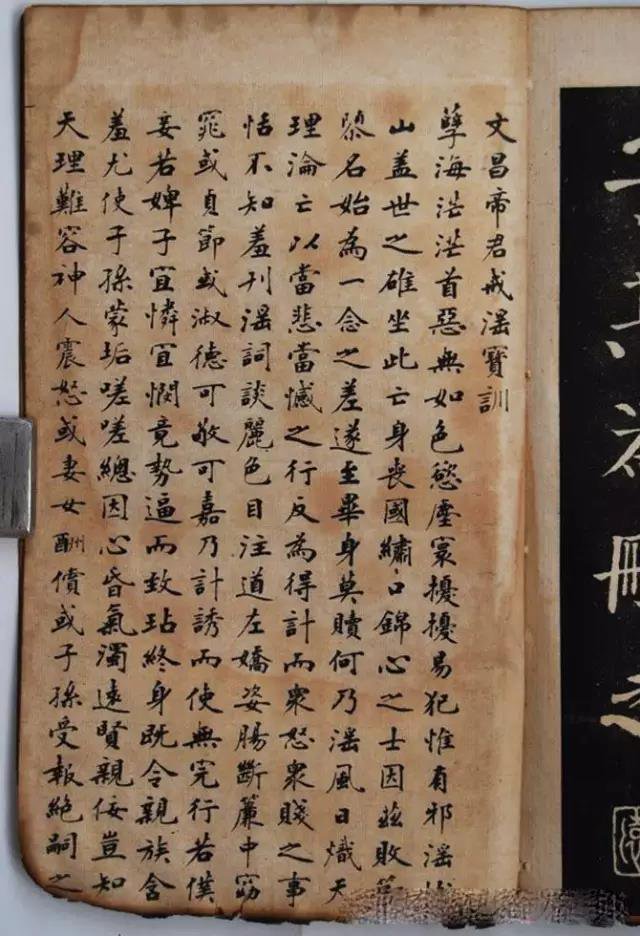 文昌帝君戒滛寶訓
孽海茫茫首惡無如色慾塵寰擾擾易犯惟有邪滛
山蓋世之雄坐此亡身喪國繡口錦心之士因茲敗
隳名始為一念之差遂至畢身莫贖何乃滛風日熾天
理淪亡以當悲當憾之行反為得計而衆怒衆賤之事
恬不知羞刊滛詞談麗色目注道左嬌姿腸斷簾中窈
窕或貞節或淑德可敬可嘉乃計誘而使無完行若僕
妾若婢子宜憐宜憫竟勢逼而致玷終身既令親族含
羞尤使子孫蒙垢嗟嗟總因心昏氣濁遠賢親佞豈知
天理難容神人震怒或妻女酬償或子孫受報絕嗣之